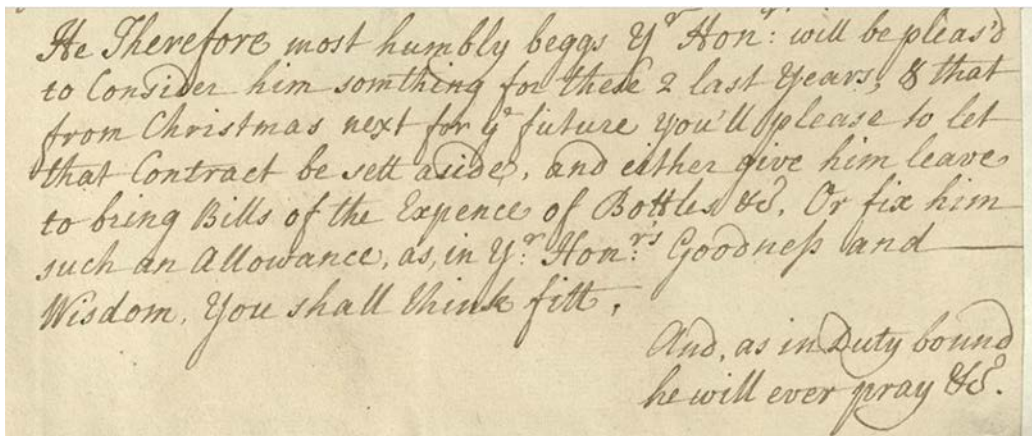 He Therefore most humbly beggs Yr Hon:rs will be pleas'd
to Consider him somthing for these 2 last Years, & that
from Christmas next for ye future you'll please to let
that Contract be sett aside, and either give him leave
to bring Bills of the Expence of Bottles &c. Or fix him
such an Allowance, as, in Yr: Hon:r's Goodneſs and
Wisdom, You shall think fitt.
And, as in Duty bound
he will ever pray &c.